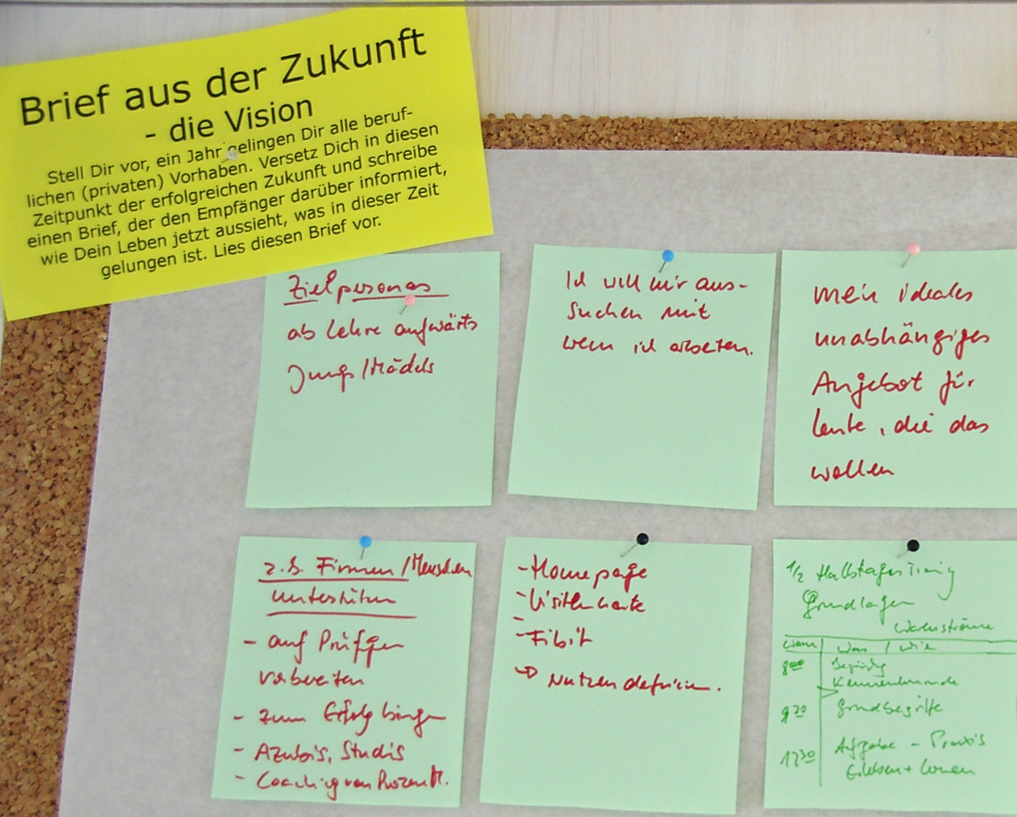 Brief aus der Zukunft
- die Vision
Stell Dir vor, ein Jahr gelingen Dir alle beruf-
lichen (privaten) Vorhaben. Versetz Dich in diesen
Zeitpunkt der erfolgreichen Zukunft und schreibe
einen Brief, der den Empfänger darüber informiert,
wie Dein Leben jetzt aussieht, was in dieser Zeit
gelungen ist. Lies diesen Brief vor.
Zielpersonas
ab Lehre aufwärts
Jungs/Mädels
Ich will mir aus-
suchen mit
wem ich arbeiten.
mein ideales
unabhängiges
Angebot für
Leute, die das
wollen
z.B. Firmen/Menschen
unterstützen
- auf Prüfgen
vorbereiten
- zum Erfolg bringen
- Azubis, Studis
- Coaching von
- Homepage
- Visitenkarte
- Fibit
→ Nutzen definieren.
1/2 Halbtagestraining
Grundlagen
Warenströme
wann | was / wie
8:00
Kennenlernrunde
9:30 Grundbegriffe
12:30 Aufgabe - Praxis
Erleben + Lernen